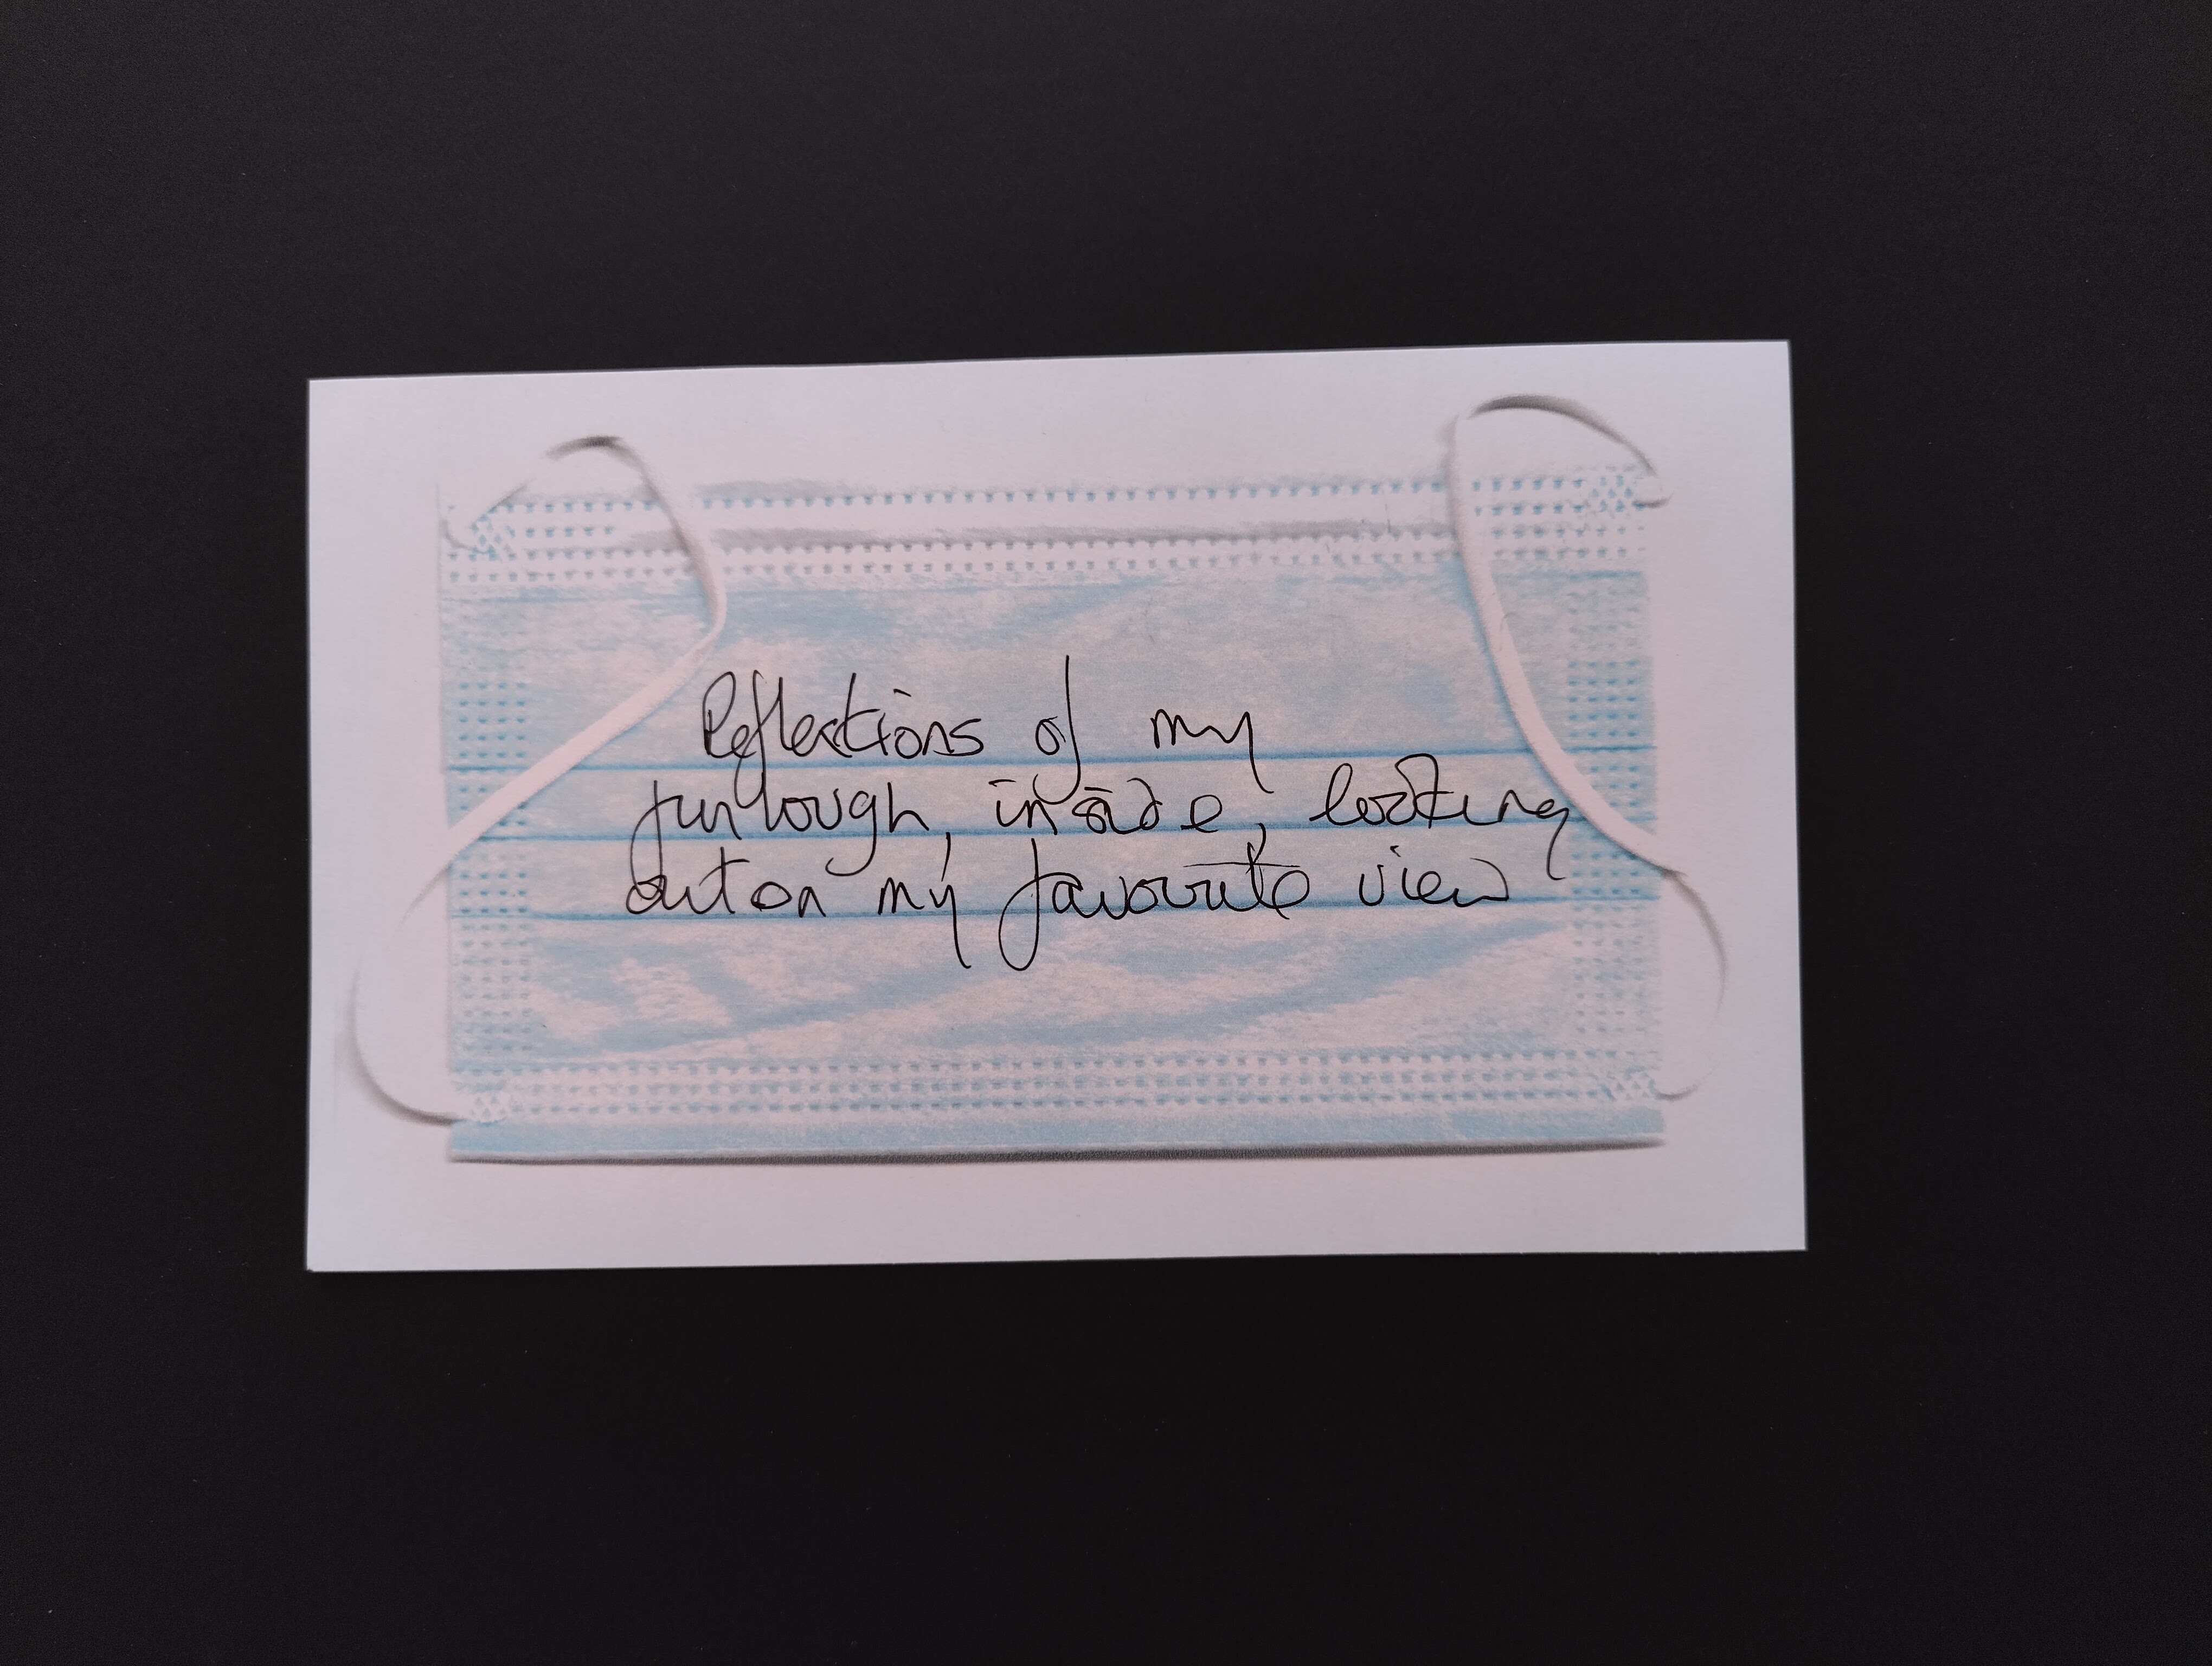 Reflections of my
furlough, inside, looking
out on my favourite view